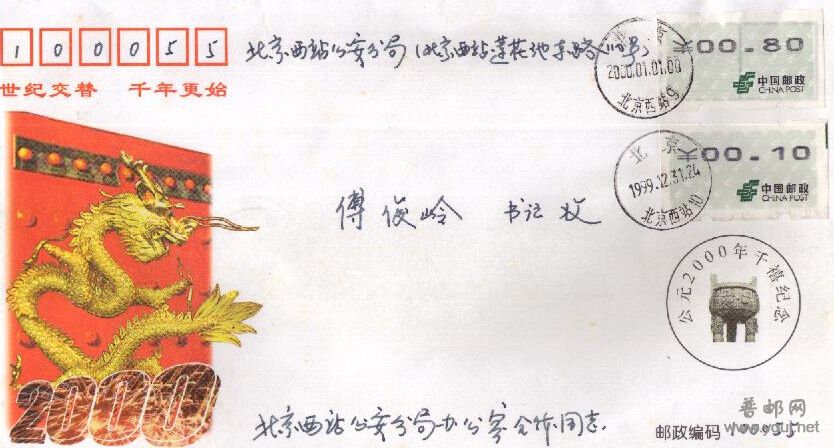 100055
北京西站公安分局(北京西站莲花池东路118号)
世纪交替 千年更始
北京
2000.01.01.00
北京西站9
天00.80
中国邮政
CHINA POST
北京
1999.12.31.24
北京西站10
天00.10
中国邮政
CHINA POST
傅俊岭 书记 收
公元2000年千禧纪念
2000
北京西站公安分局办公室全体同志
普邮网
www.ygut.net
邮政编码 100055